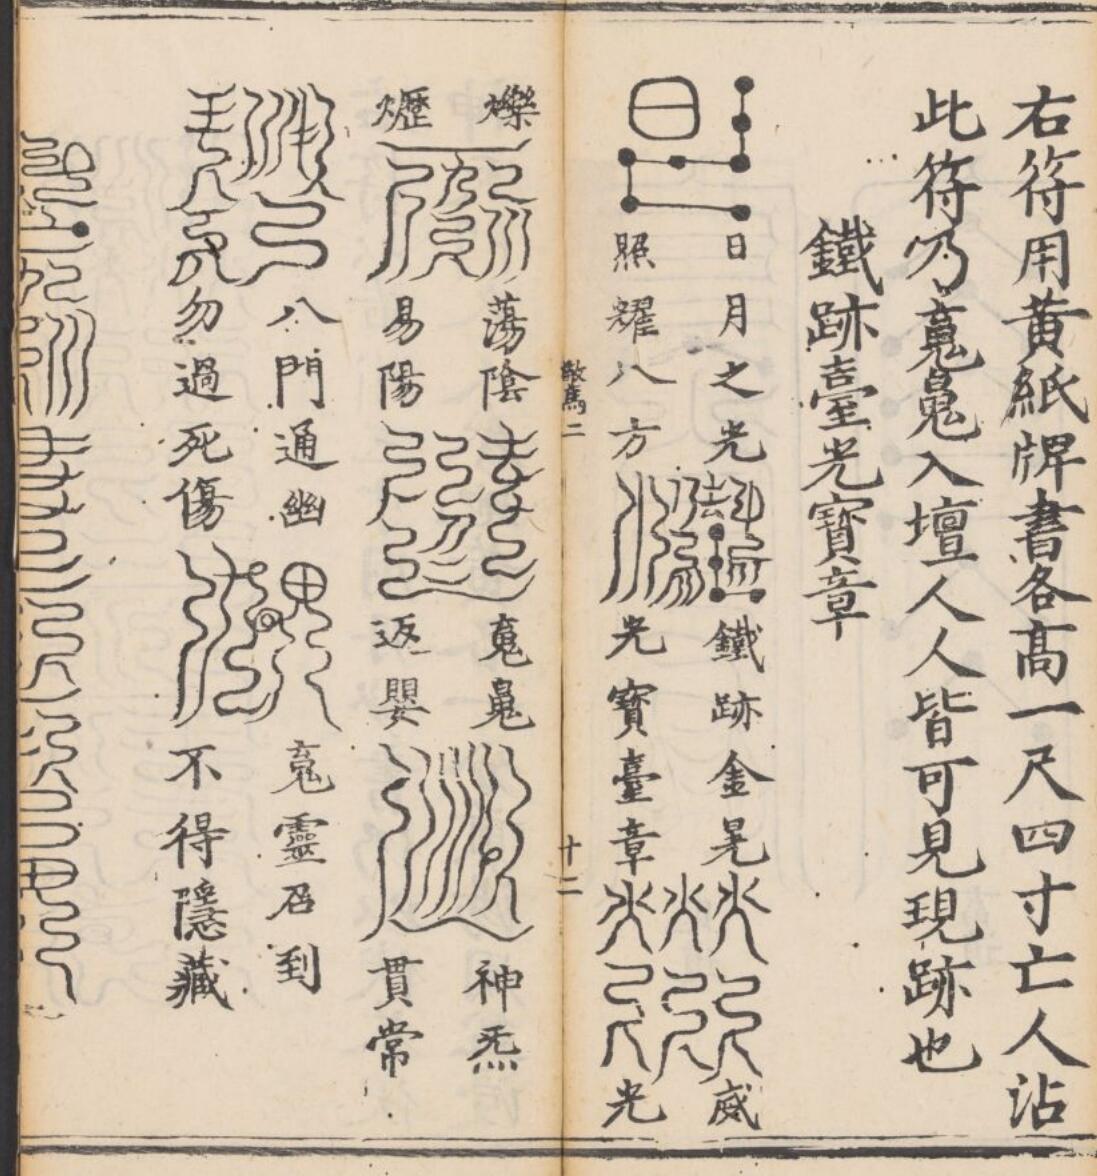 右符用黄紙牌書各高一尺四寸亡人沾
此符乃䰟入壇人人皆可見現跡也
鐵跡臺光寶章
日月之光 鐵跡金晃 威
照耀八方 光寶臺章 光
驚二 十二
爍 蕩陰 䰟 神炁
爏 易陽 返嬰 貫常
八門通幽 䰟靈召到
勿過死傷 不得隱藏